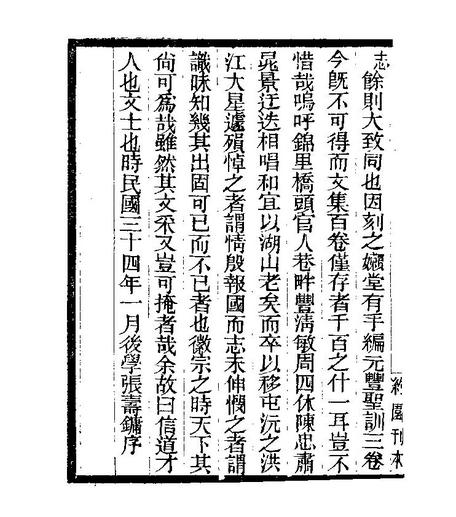 志餘則大致同也因刻之嬾堂有手編元豐聖訓三卷
今旣不可得而文集百卷僅存者千百之什一耳豈不
惜哉嗚呼錦里橋頭官人巷畔豐淸敏周四休陳忠肅
晁景迂迭相唱和宜以湖山老矣而卒以移屯沅之洪
江大星遽殞悼之者謂情殷報國而志未伸憫之者謂
識昧知幾其出固可已而不已者也徽宗之時天下其
尙可為哉雖然其文采又豈可掩者哉余故曰信道才
人也文士也時民國三十四年一月後學張壽鏞序
約園刊本